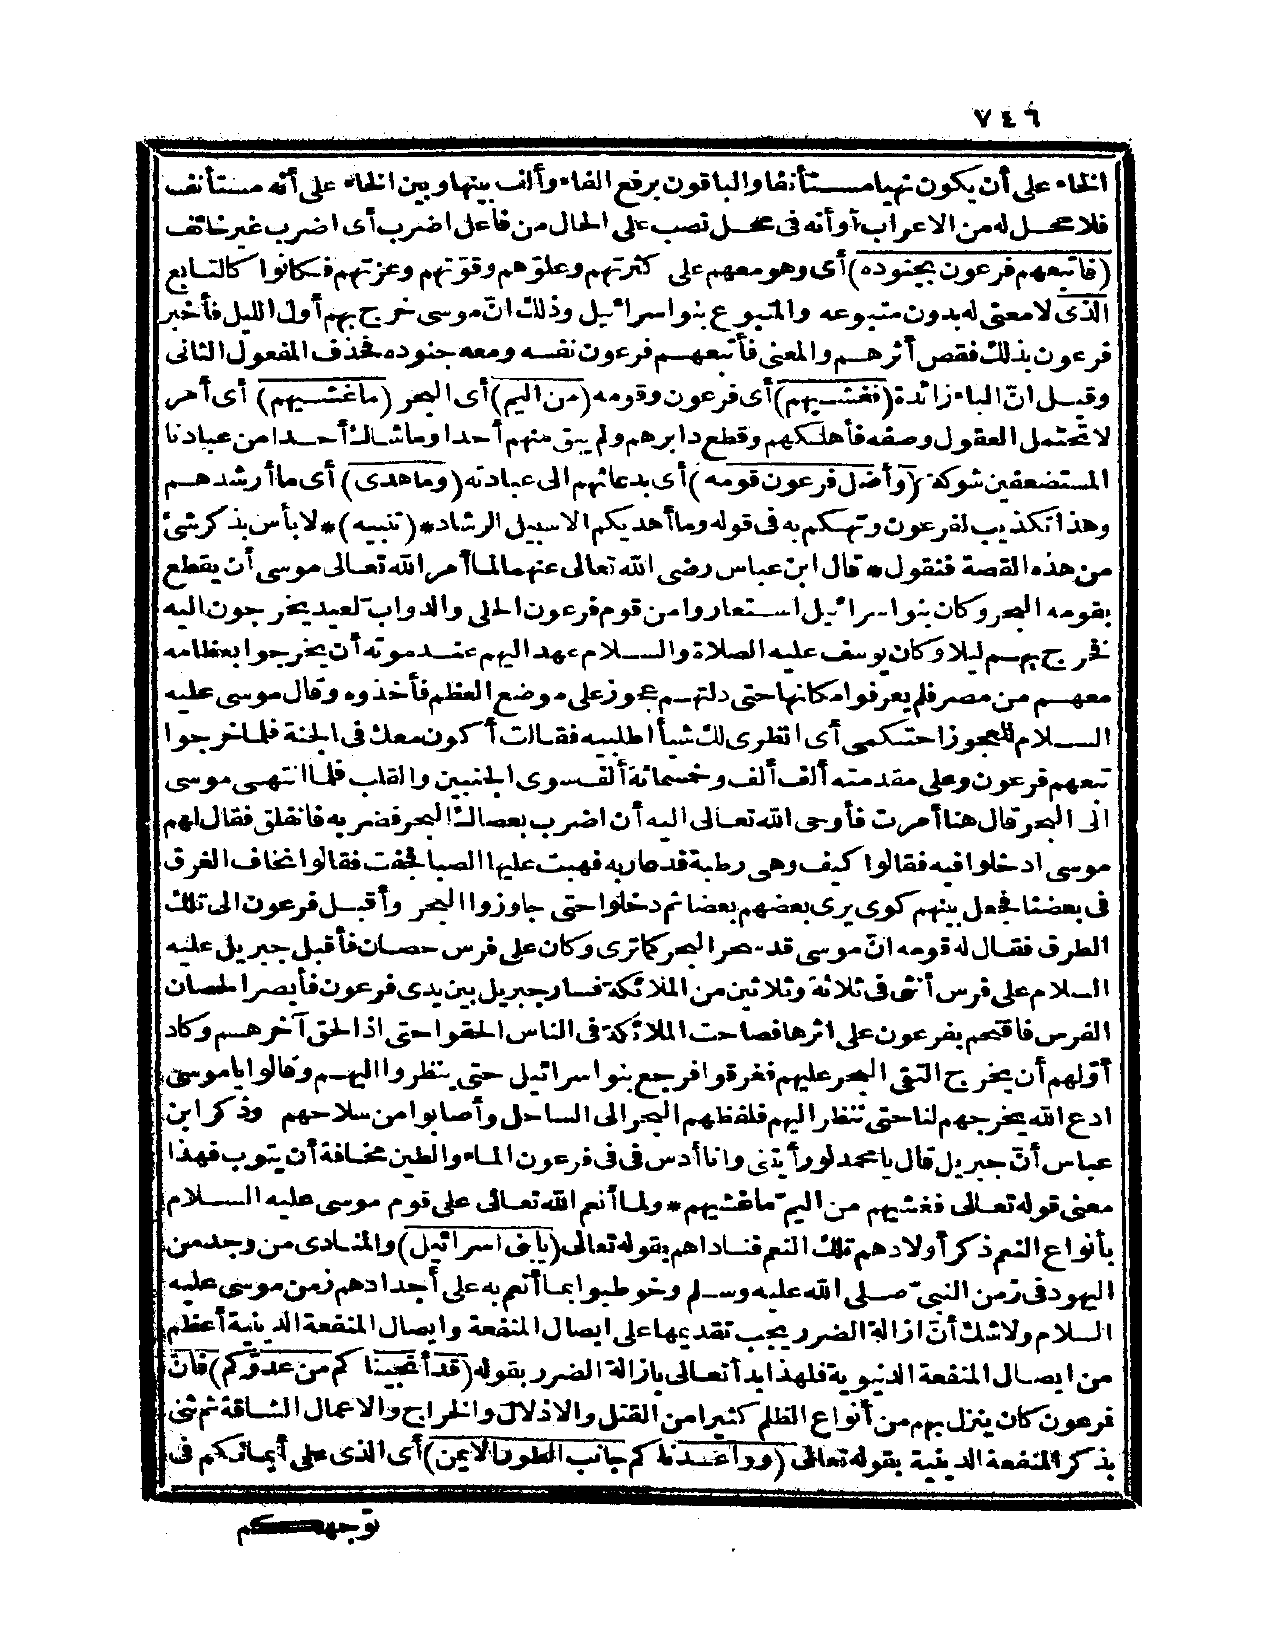 ٧٤٦
الخاء على أن يكون نهيا مستأنفا والباقون برفع الفاء وألف بينها وبين الخاء على أنه مستأنف
فلا محل له من الاعراب أو أنه فى محل نصب على الحال من فاعل اضرب أى اضرب غير خائف
(فأتبعهم فرعون بجنوده) أى وهو معهم على كثرتهم وعلوّهم وقوّتهم وعزتهم فكانوا كالتابع
الذى لا معنى له بدون متبوعه والمتبوع بنو اسرائيل وذلك انّ موسى خرج بهم أول الليل فأخبر
فرعون بذلك فقص أثرهم والمعنى فأتبعهم فرعون نفسه ومعه جنوده فحذف المفعول الثانى
وقيل انّ الباء زائدة (فغشيهم) أى فرعون وقومه (من اليم) أى البحر (ما غشيهم) أى أمر
لا تحتمل العقول وصفه فأهلكهم وقطع دابرهم ولم يبق منهم أحدا وما شاك أحدا من عبادنا
المستضعفين شوكة (وأضل فرعون قومه) أى بدعائهم الى عبادته (وما هدى) أى ما أرشدهم
وهذا تكذيب لفرعون وتهكم به فى قوله وما أهديكم الا سبيل الرشاد * (تنبيه) * لا بأس بذكر شئ
من هذه القصة فنقول * قال ابن عباس رضى الله تعالى عنهما لما أمر الله تعالى موسى أن يقطع
بقومه البحر وكان بنو اسرائيل استعاروا من قوم فرعون الحلى والدواب لعيد يخرجون اليه
فخرج بهم ليلا وكان يوسف عليه الصلاة والسلام عهد اليهم عند موته أن يخرجوا بعظامه
معهم من مصر فلم يعرفوا مكانها حتى دلتهم عجوز على موضع العظم فأخذوه وقال موسى عليه
السلام للعجوز احتكمى أى انظرى لك شيأ اطلبيه فقالت أكون معك فى الجنة فلما خرجوا
تبعهم فرعون وعلى مقدمته ألف ألف وخمسمائة ألف سوى الجنبين والقلب فلما انتهى موسى
الى البحر قال هنا أمرت فأوحى الله تعالى اليه أن اضرب بعصاك البحر فضربه فانفلق فقال لهم
موسى ادخلوا فيه فقالوا كيف وهى رطبة فدعا ربه فهبت عليها الصبا فجفت فقالوا نخاف الغرق
فى بعضنا فجعل بينهم كوى يرى بعضهم بعضا ثم دخلوا حتى جاوزوا البحر وأقبل فرعون الى تلك
الطرق فقال له قومه انّ موسى قد سحر البحر كما ترى وكان على فرس حصان فأقبل جبريل عليه
السلام على فرس أنثى فى ثلاثة وثلاثين من الملائكة فسار جبريل بين يدى فرعون فأبصر الحصان
الفرس فاقتحم بفرعون على اثرها فصاحت الملائكة فى الناس الحقوا حتى اذا لحق آخرهم وكاد
أوّلهم أن يخرج التقى البحر عليهم فغرقوا فرجع بنو اسرائيل حتى ينظروا اليهم وقالوا يا موسى
ادع الله يخرجهم لنا حتى ننظر اليهم فلفظهم البحر الى الساحل وأصابوا من سلاحهم وذكر ابن
عباس أنّ جبريل قال يا محمد لو رأيتنى وانا أدس فى فى فرعون الماء والطين مخافة أن يتوب فهذا
معنى قوله تعالى فغشيهم من اليم ما غشيهم * ولما أنعم الله تعالى على قوم موسى عليه السلام
بأنواع النعم ذكر أولادهم تلك النعم فناداهم بقوله تعالى (يا بنى اسرائيل) والمنادى من وجد من
اليهود فى زمن النبىّ صلى الله عليه وسلم وخوطبوا بما أنعم به على أجدادهم زمن موسى عليه
السلام ولا شك أنّ ازالة الضرر يجب تقديمها على ايصال المنفعة وايصال المنفعة الدينية أعظم
من ايصال المنفعة الدنيوية فلهذا بدأ تعالى بازالة الضرر بقوله (قد أنجيناكم من عدوّكم) فانّ
فرعون كان ينزل بهم من أنواع الظلم كثيرا من القتل والاذلال والخراج والاعمال الشاقة ثم ثنى
بذكر المنفعة الدينية بقوله تعالى (وواعدناكم جانب الطور الايمن) أى الذى على أيمانكم فى
توجهكم